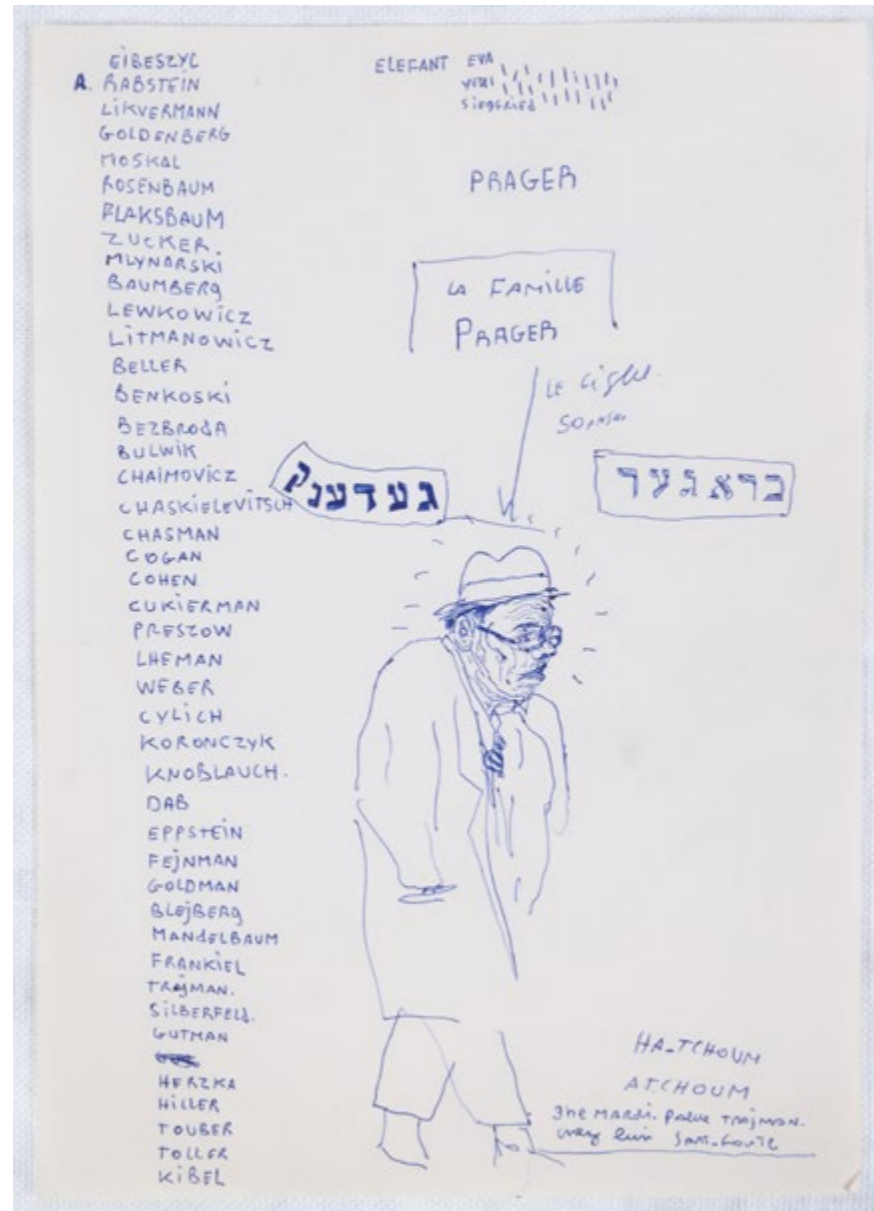 EIBESZYC
A. RABSTEIN
LIKVERMANN
GOLDENBERG
MOSKAL
ROSENBAUM
FLAKSBAUM
ZUCKER.
MLYNARSKI
BAUMBERG
LEWKOWICZ
LITMANOWICZ
BELLER
BENKOSKI
BEZBRODA
BULWIK
CHAIMOVICZ
CHASKIELEVITSCH
CHASMAN
COGAN
COHEN
CUKIERMAN
PRESZOW
LHEMAN
WEBER
CYLICH
KORONCZYK
KNOBLAUCH.
DAB
EPPSTEIN
FEJNMAN
GOLDMAN
BLEJBERG
MANDELBAUM
FRANKIEL
TRAJMAN.
SILBERFELD.
GUTMAN
HERZKA
HILLER
TOUBER
TOLLER
KIBEL
ELEFANT EVA
SIEGFRIED
PRAGER
LA FAMILLE
PRAGER
LE
געדענק
בראגער
HA_TCHOUM
ATCHOUM
MARDI.